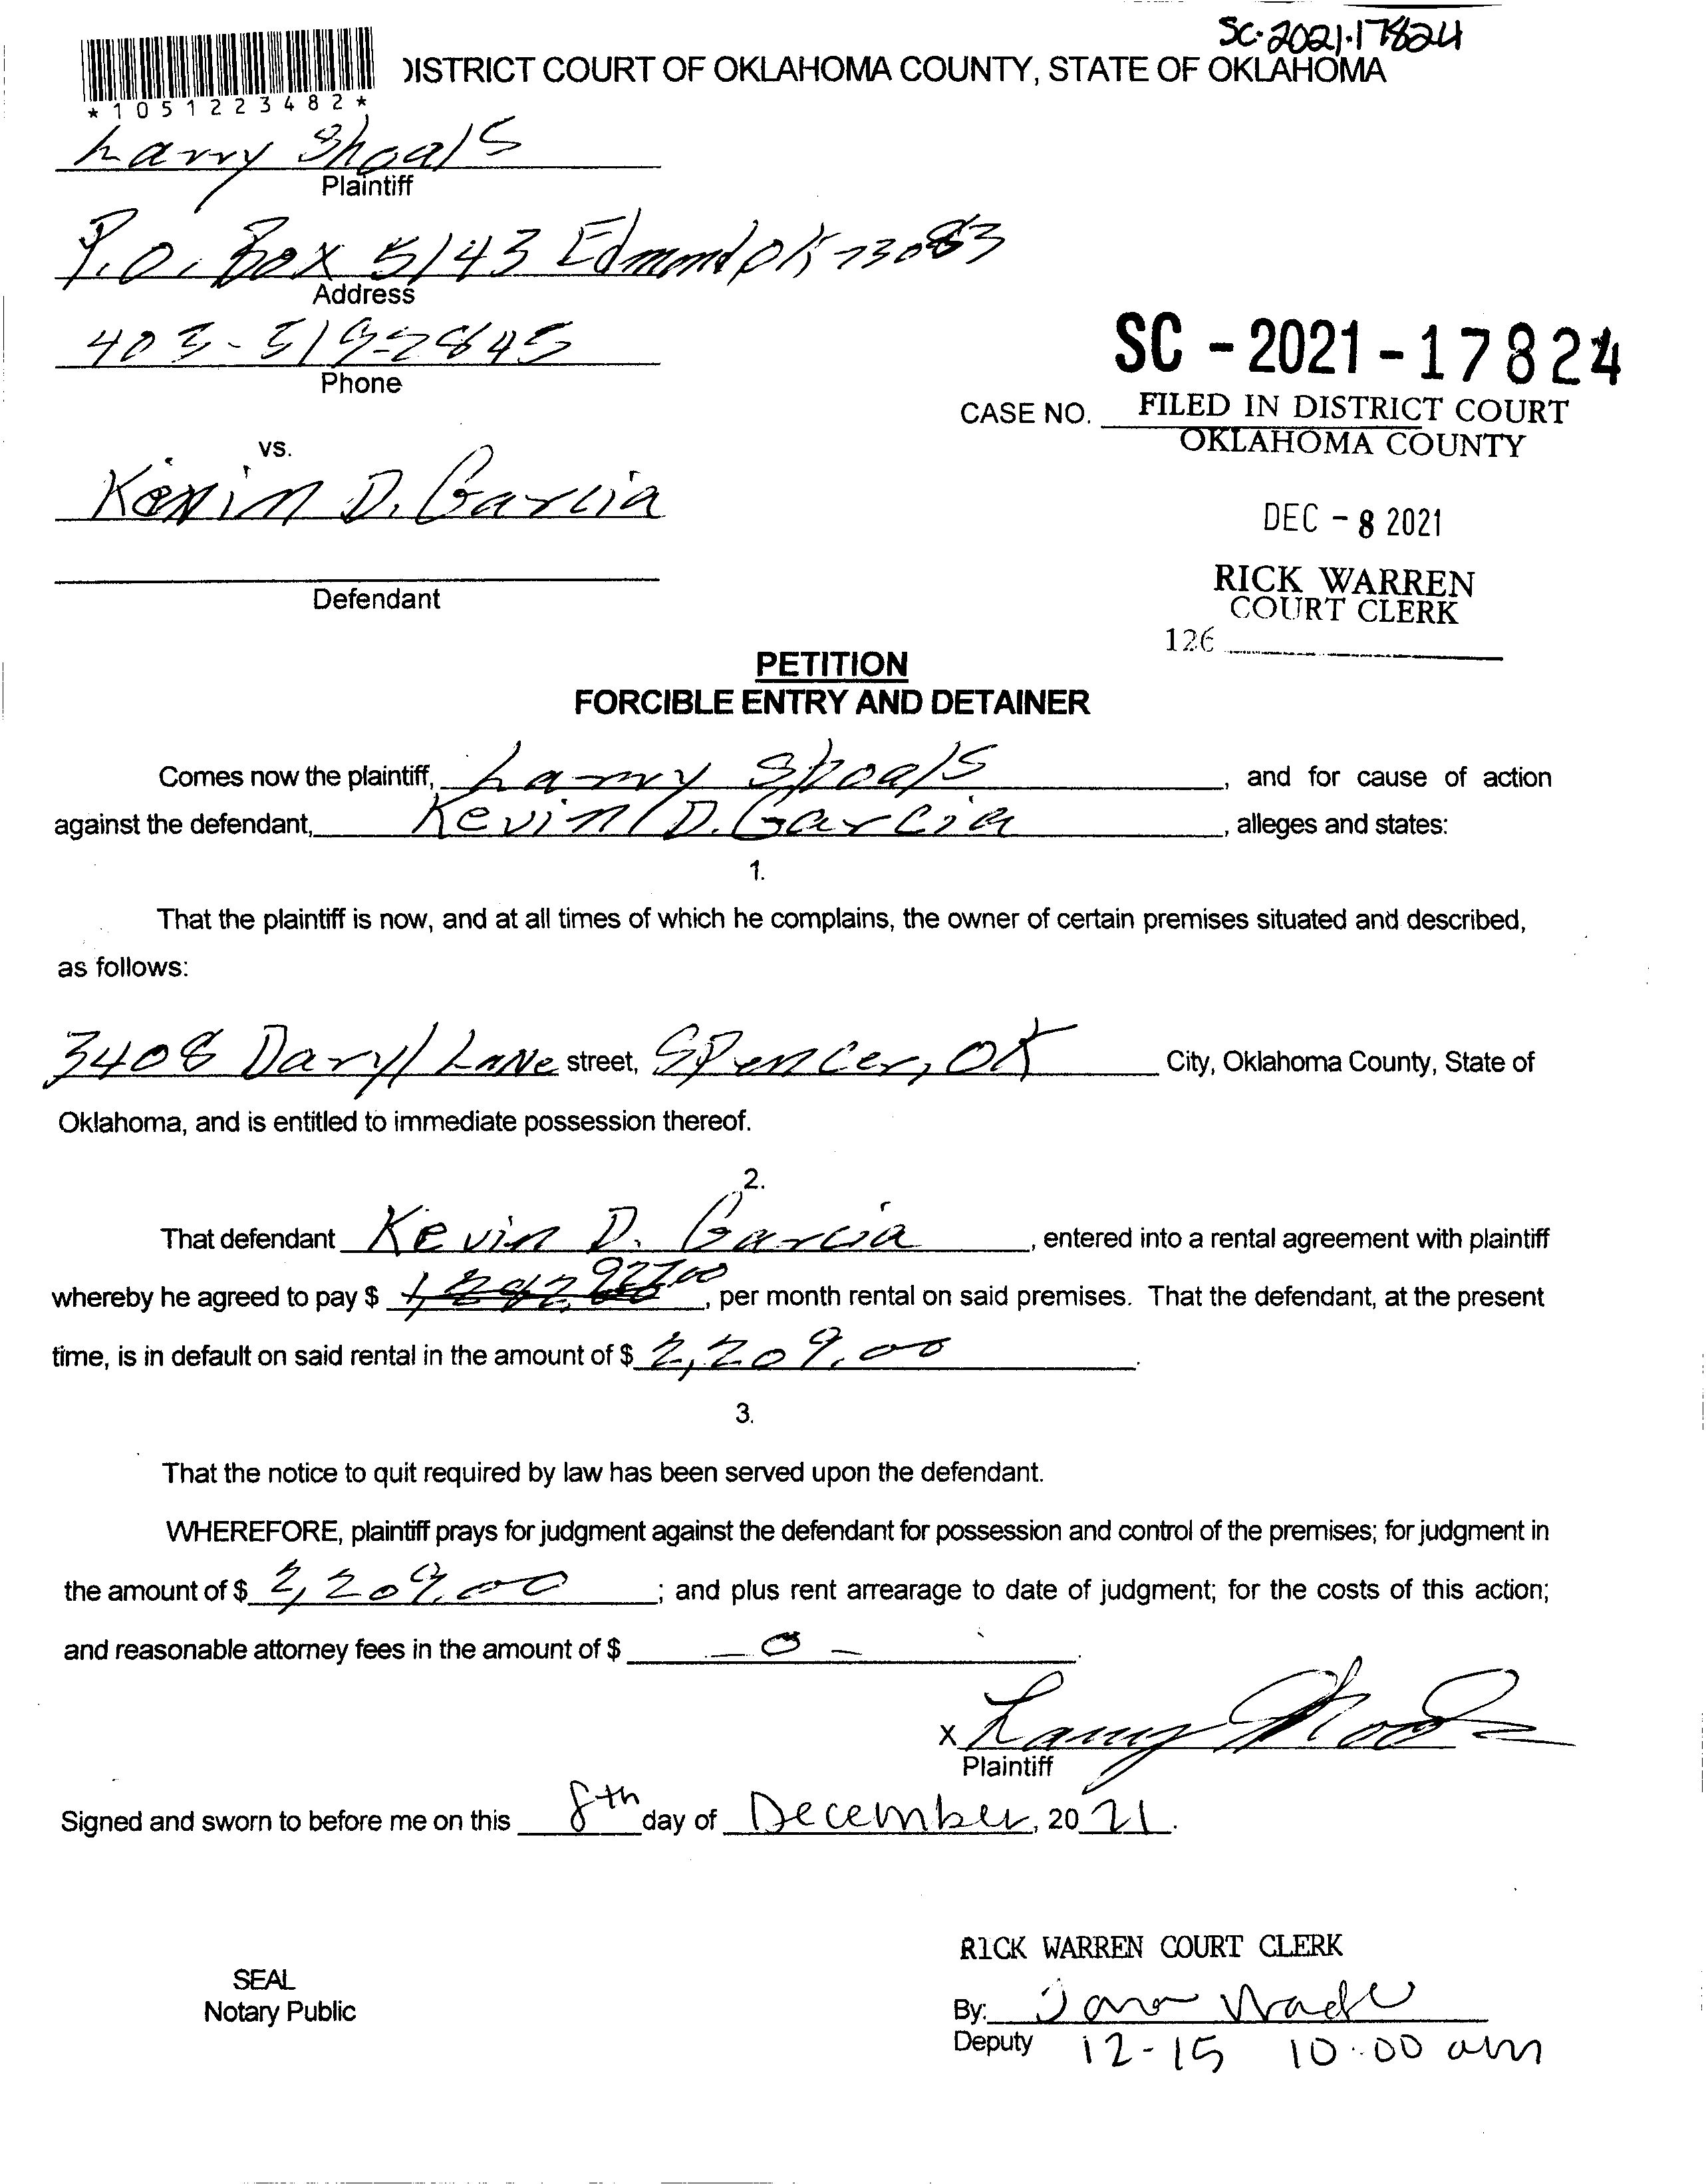 SC-2021-17824
DISTRICT COURT OF OKLAHOMA COUNTY, STATE OF OKLAHOMA
*1051223482*
Larry Shoals
Plaintiff
P.O. Box 5143 Edmond OK 73083
Address
403-519-2845
Phone
SC - 2021 - 17824
CASE NO.
FILED IN DISTRICT COURT
OKLAHOMA COUNTY
vs.
Kevin D. Garcia
DEC - 8 2021
Defendant
RICK WARREN
COURT CLERK
126
PETITION
FORCIBLE ENTRY AND DETAINER
Comes now the plaintiff, Larry Shoals, and for cause of action
against the defendant, Kevin D. Garcia, alleges and states:
1.
That the plaintiff is now, and at all times of which he complains, the owner of certain premises situated and described,
as follows:
3408 Daryl Lane street, Spencer, OK City, Oklahoma County, State of
Oklahoma, and is entitled to immediate possession thereof.
2.
That defendant Kevin D. Garcia, entered into a rental agreement with plaintiff
whereby he agreed to pay $ 927.00, per month rental on said premises. That the defendant, at the present
time, is in default on said rental in the amount of $ 2,209.00.
3.
That the notice to quit required by law has been served upon the defendant.
WHEREFORE, plaintiff prays for judgment against the defendant for possession and control of the premises; for judgment in
the amount of $ 2,209.00; and plus rent arrearage to date of judgment; for the costs of this action;
and reasonable attorney fees in the amount of $ - 0 -.
x Larry Shoals
Plaintiff
Signed and sworn to before me on this 8th day of December, 2021.
RICK WARREN COURT CLERK
SEAL
Notary Public
By: Wade
Deputy 12-15 10:00 am